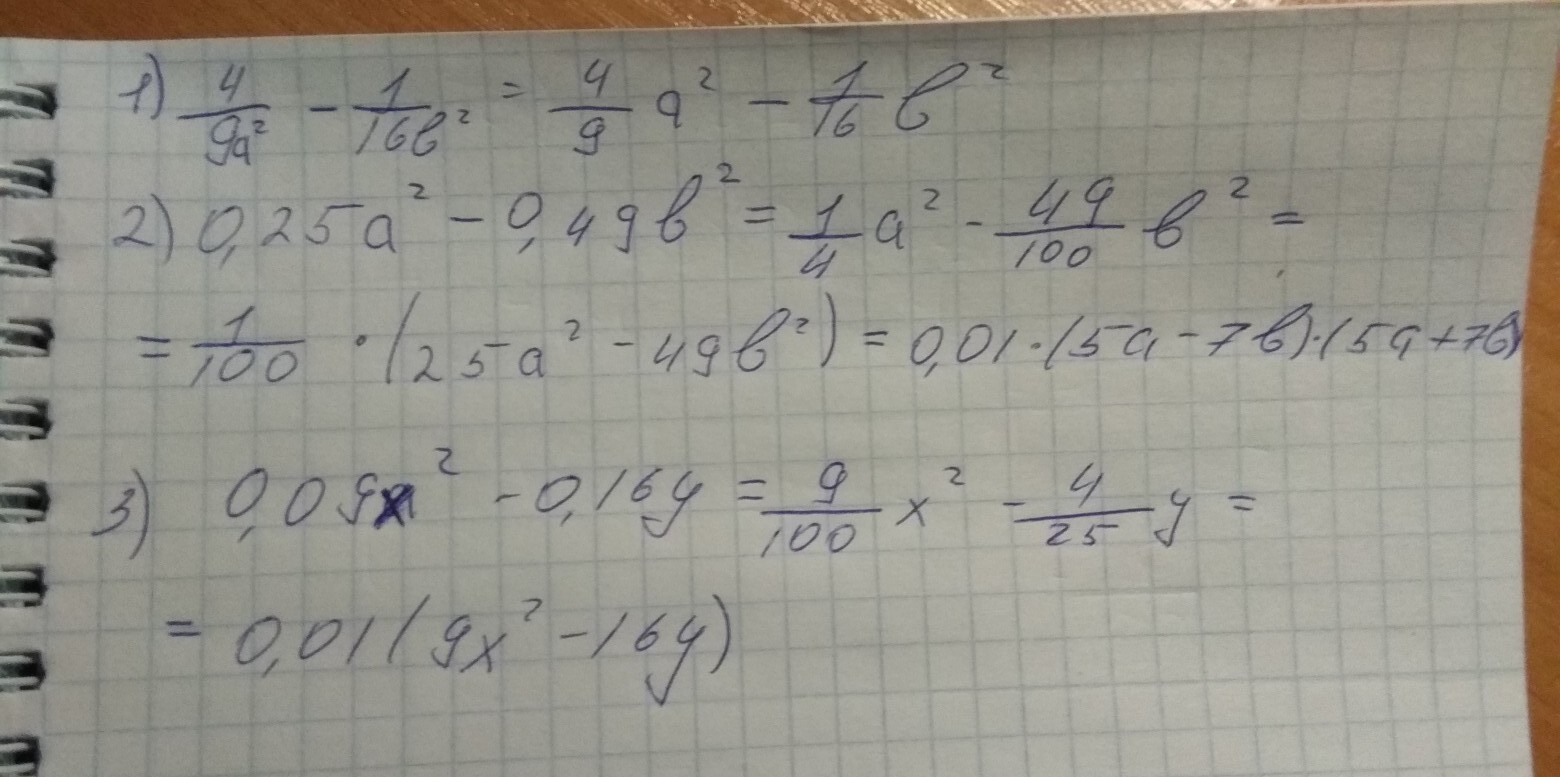 1) 4/9a² - 1/16b² = 4/9 a² - 1/16 b²
2) 0,25a² - 0,49b² = 1/4 a² - 49/100 b² =
= 1/100 · (25a² - 49b²) = 0,01·(5a - 7b)·(5a + 7b)
3) 0,09x² - 0,16y = 9/100 x² - 4/25 y =
= 0,01(9x² - 16y)